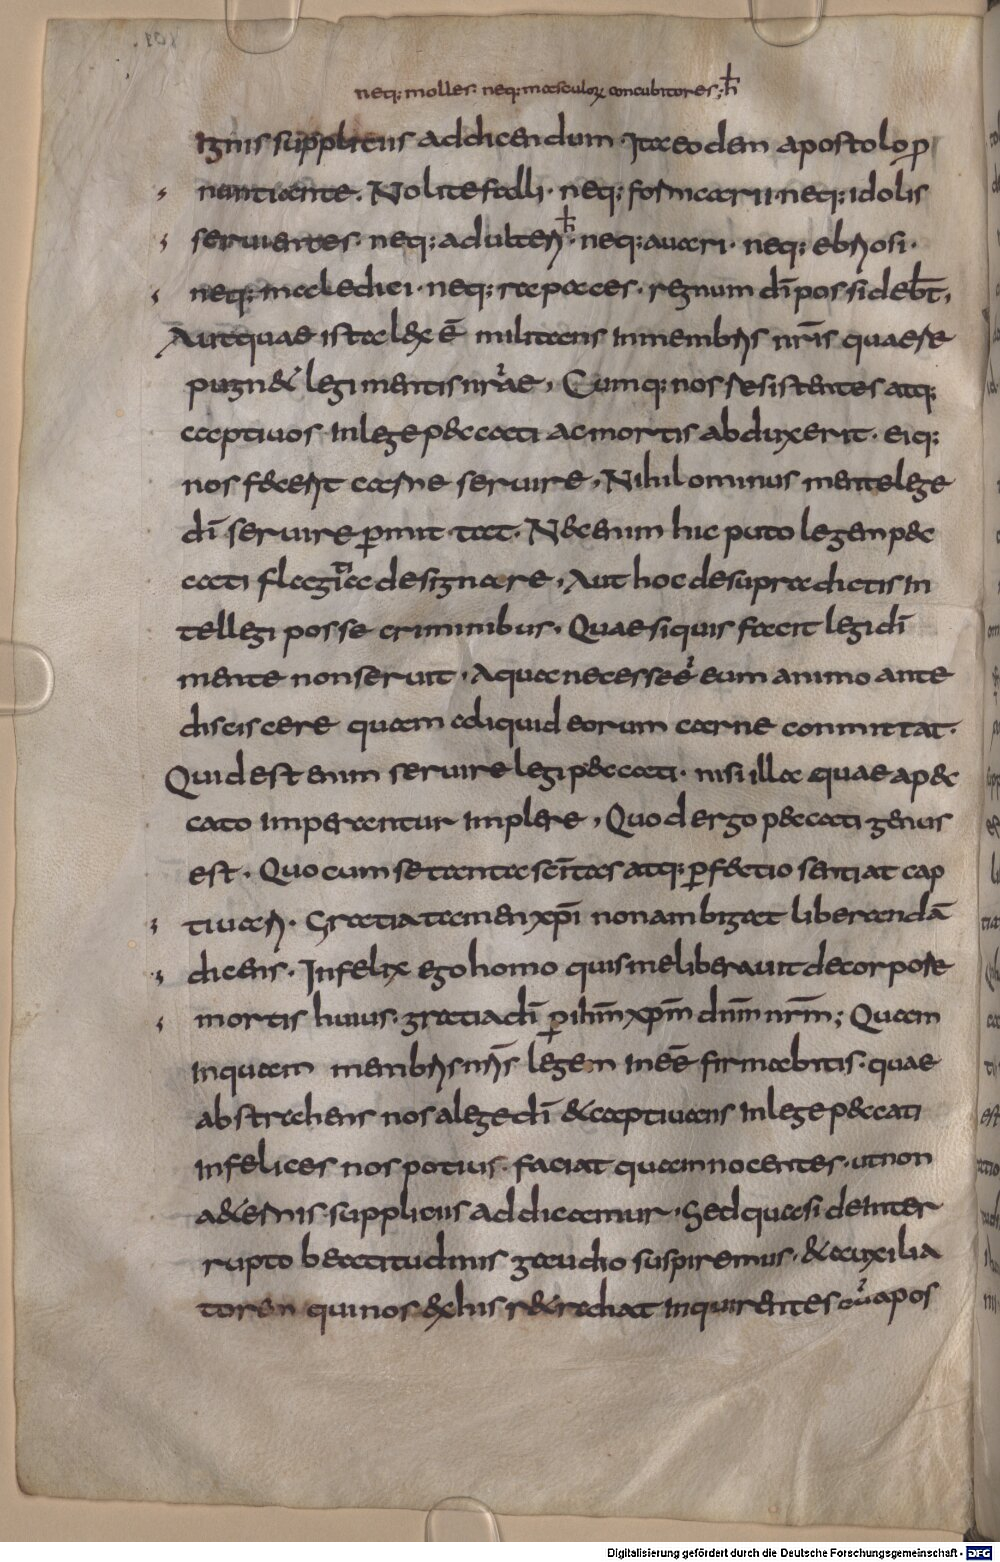 neq; molles· neq; masculorꝝ concubitores; ħ
ignis suppliciis addicendum. Ita eodem apostolo ꝓ
nuntiante. Nolite falli· neq; fornicarii· neq; idolis
servientes· neq; adulteri ħ· neq; avari· neq; ebriosi·
neq; maledici· neq; rapaces· regnum dī possidebt̄,
Aut quae ista lex ē militans in membris nr̄is quae re
pugn& legi mentis nr̄ae, Cumq; nos resistentes atq;
captivos in lege p&cati ac mortis abduxerit· eiq;
nos facerit carne servire, Nihilominus mente lege
dī servire ꝑmittat. N&enim hic puto legem p&c
cati flagitia designare, Aut hoc de supradictis in
tellegi posse criminibus, Quae siquis facit legi dī
mente non servit, A qua necesse ē eum animo ante
disciscere quam aliquid eorum carne conmittat·
Quid est enim servire legi p&ccati· nisi illa quae a p&c
cato imperantur implere, Quod ergo p&ccati genus
est. Quo cum se tanta scītas atq; ꝑf&ctio sentiat cap
tivari. Gratia tamen xp̄i non ambigat liberandā
dicens. Infelix ego homo quis me liberavit de corpore
mortis huius· gratia dī ꝑ ih̄m xp̄m dn̄m nr̄m; Quam
inquam membris nr̄is legem in eē firmabitis· quae
abstrahens nos a lege dī & captivans in lege p&ccati
infelices nos potius· faciat quam nocentes· ut non
a&ernis suppliciis addicamur, Sed quasi de inter
rupto beatitudinis gaudio suspiremus· & auxilia
torem qui nos & his r&rahat inquirentes cū apos
Digitalisierung gefördert durch die Deutsche Forschungsgemeinschaft - DFG